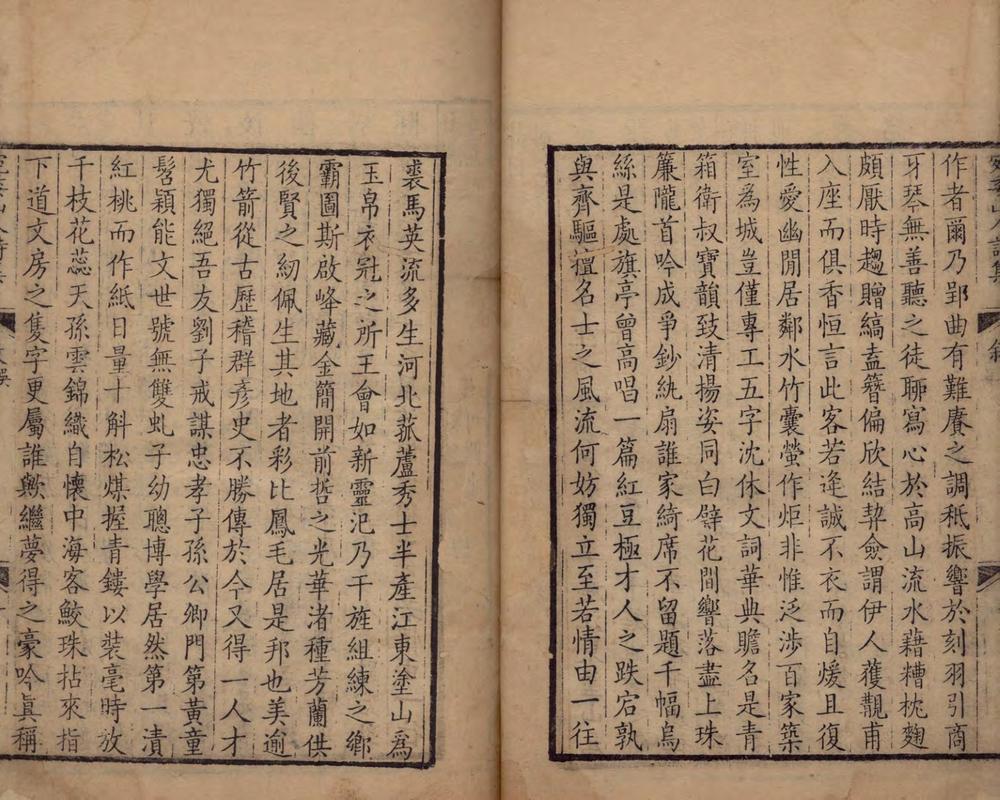 作者爾乃郢曲有難賡之調秪振響於刻羽引商
牙琴無善聽之徒聊寫心於高山流水藉糟枕麴
頗厭時趨贈縞盍簪偏欣結契僉謂伊人蒦覯甫
入座而俱香恒言此客若逢誠不衣而自煖且復
性愛幽閒居鄰水竹囊螢作炬非惟泛涉百家築
室為城豈僅專工五字沈休文詞華典贍名是青
箱衛叔寶韻致清揚姿同白璧花間響落盡上珠
簾隴首吟成爭鈔紈扇誰家綺席不留題千幅烏
絲是處旗亭曾高唱一篇紅豆極才人之跌宕孰
與齊驅擅名士之風流何妨獨立至若情由一往
裘馬英流多生河北菰蘆秀士半產江東塗山為
玉帛衣冠之所王會如新靈氾乃干旌組練之鄉
霸圖斯啟峰藏金簡開前哲之光華渚種芳蘭供
後賢之紉佩生其地者彩比鳳毛居是邦也美逾
竹箭從古歷稽群彥史不勝傳於今又得一人才
尤獨絕吾友劉子戒謀忠孝子孫公卿門第黃童
髫穎能文世號無雙虬子幼聰博學居然第一漬
紅桃而作紙日量十斛松煤握青鏤以裝毫時放
千枝花蕊天孫雲錦織自懷中海客鮫珠拈來指
下道文房之隻字更屬誰歟繼夢得之豪吟眞稱